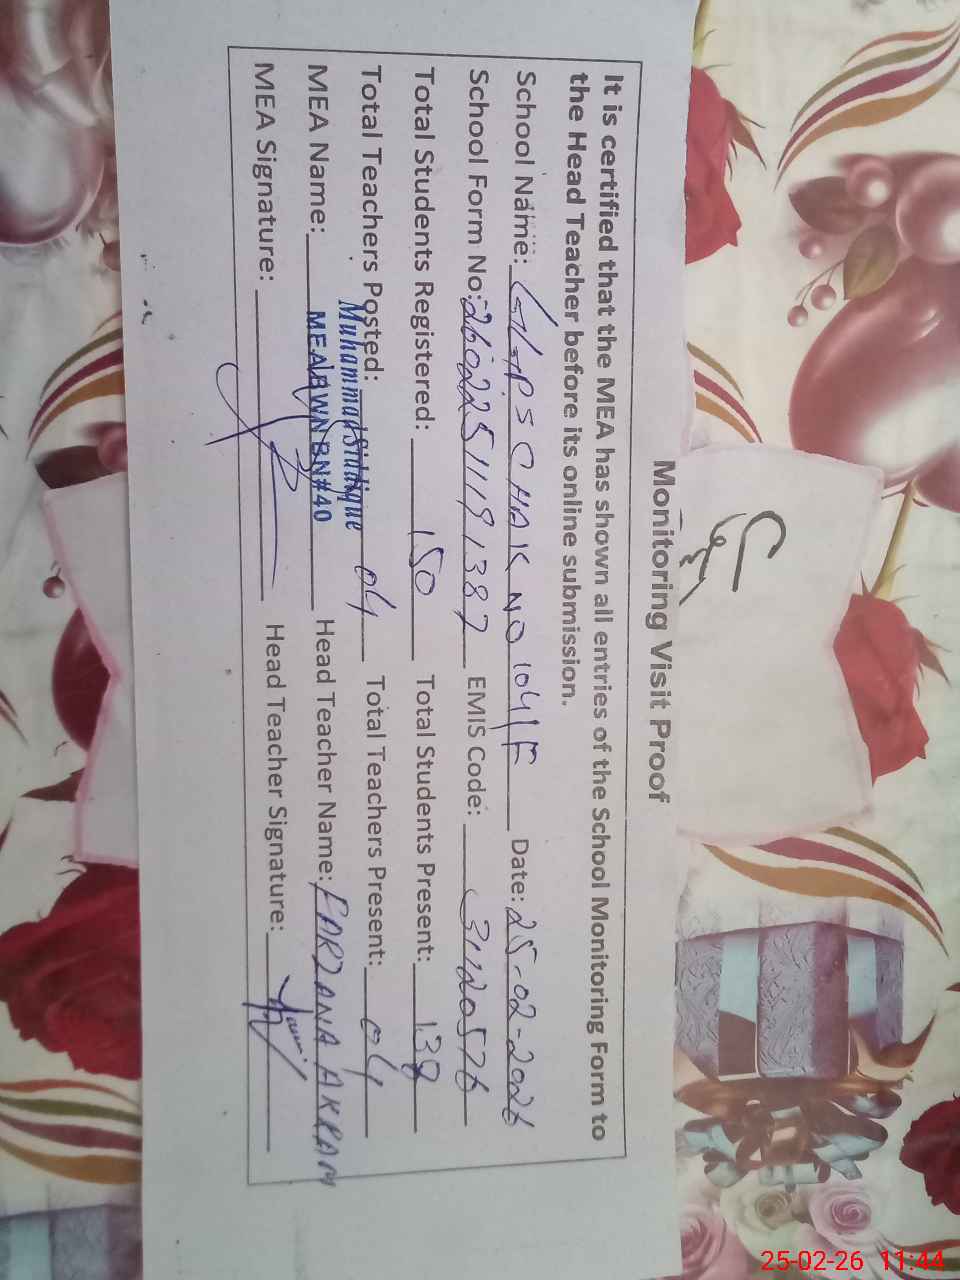 Monitoring Visit Proof
It is certified that the MEA has shown all entries of the School Monitoring Form to
the Head Teacher before its online submission.
School Name: GGPS CHAK NO 104/F Date: 25-02-2026
School Form No: 26022511191387 EMIS Code: 31120576
Total Students Registered: 150 Total Students Present: 138
Total Teachers Posted: 04 Total Teachers Present: 04
Muhammad Siddique
MEA Name: MEA BWN BN#40 Head Teacher Name: FARZANA AKRAM
MEA Signature: Head Teacher Signature:
25-02-26 11:44